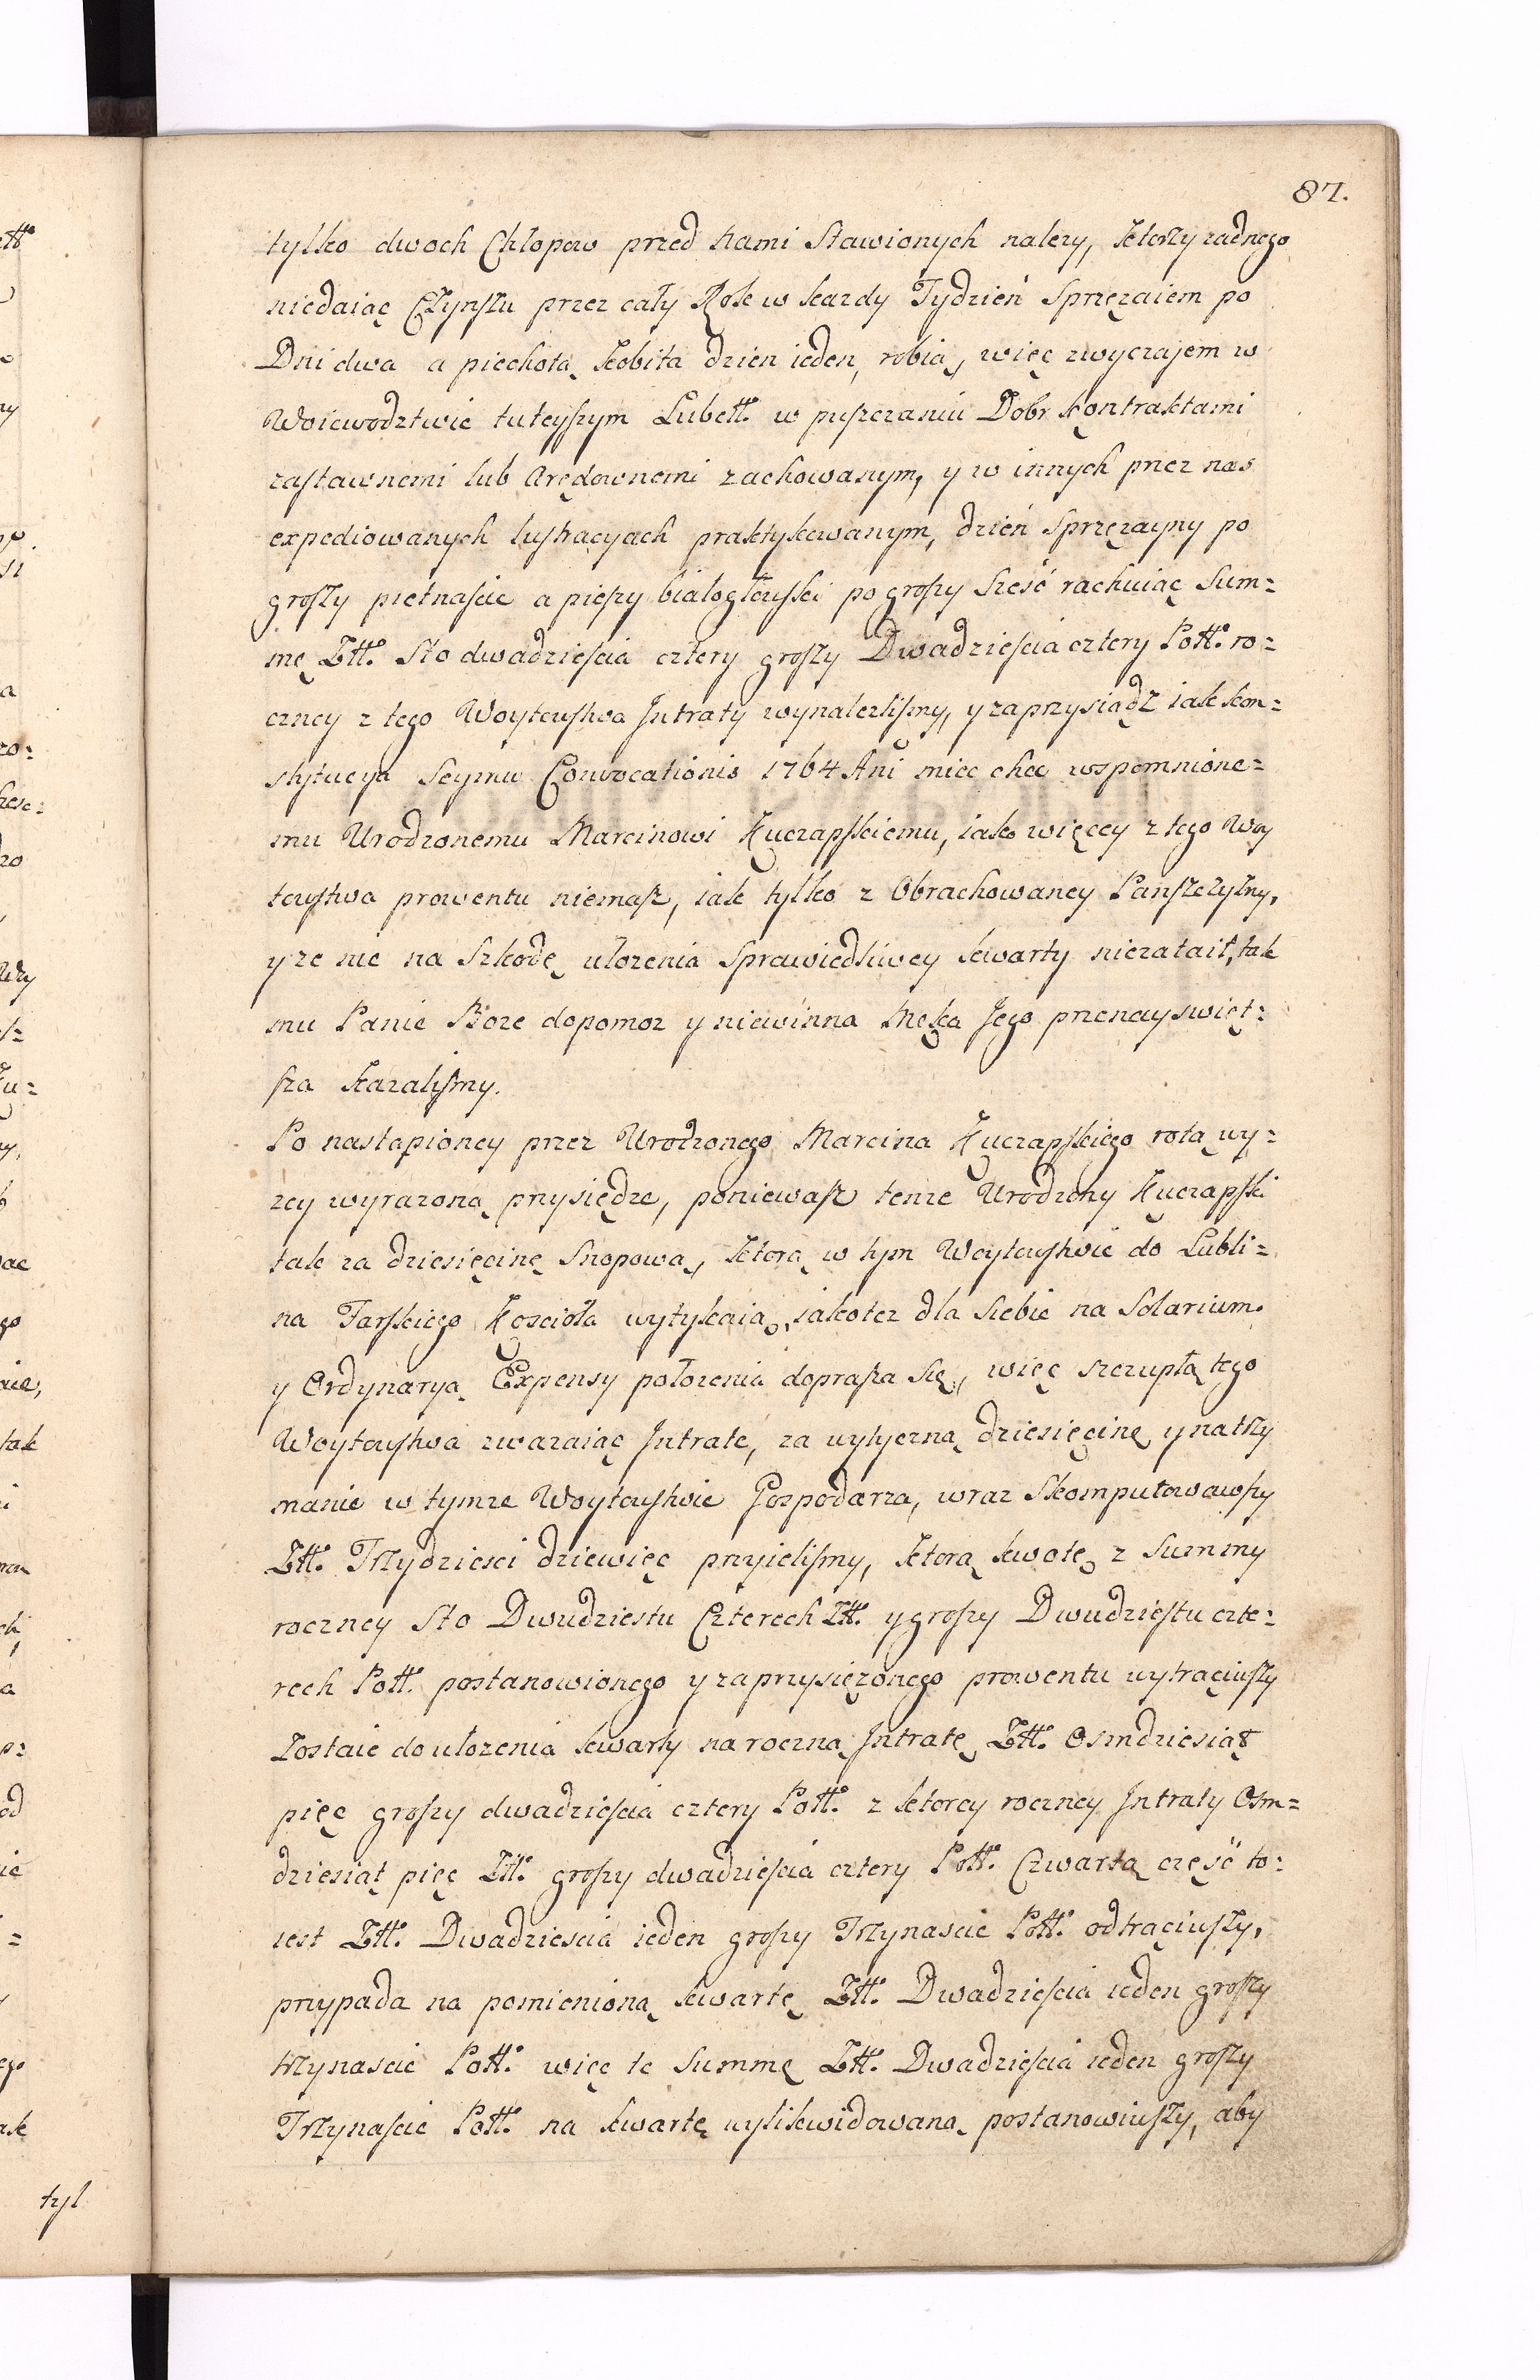 87.
tylko dwoch Chłopow przed Nami Stawionych nalezy, ktorzy zadnego
niedaiąc Czynszu przez cały Rok w kazdy Tydzień Sprzęzaiem po
Dni dwa a piechotą kobita dzien ieden, robią, więc zwyczajem w
Woiewodztwie tuteyszym Lubell. w puszczaniu Dobr kontraktami
zastawnemi lub Arędownemi zachowanym, y w innych przez nas
expediowanych lustracyach praktykowanym, dzień Sprzęzayny po
groszy pietnascie a pieszy białogłowski po groszy Szesć rachuiąc Sum=
mę Złł. Sto dwadziescia cztery groszy Dwadziescia cztery Poll. ro=
czney z tego Woytowstwa Jntraty wynalezlismy, y zaprzysiądz iak kon=
stytucya Seymu Convocationis 1764 Ani miec chce wspomnione=
mu Urodzonemu Marcinowi Kuczapskiemu, iako więcey z tego Woy
towstwa prowentu niemasz, iak tylko z Obrachowaney Panszczyzny,
y ze nic na Szkodę ułozenia Sprawiedliwey kwarty niezataił, tak
mu Panie Boze dopomoz y niewinna Męka Jego przenayswięt=
sza kazalismy.
Po nastąpioney przez Urodzonego Marcina Kuczapskiego rotą wy=
zey wyrazoną przysiędze, poniewasz tenze Urodzony Kuczapski
tak za dziesięcinę Snopową, ktorą w tym Woytowstwie do Lubli=
na Farskiego Koscioła wytykaią, iakotez dla Siebie na Solarium
y Ordynaryą Expensy połozenia doprasza się, więc szczupłą tego
Woytowstwa zwazaiąc Jntratę, za wytyczną dziesięcinę y natrzy
manie w tymze Woytowstwie Gospodarza, wraz Skomputowawszy
Złł. Trzydziesci dziewięc przyielismy, ktorą kwotę z Summy
roczney Sto Dwudziestu Czterech Złł. y groszy Dwudziestu czte=
rech Poll. postanowionego y zaprzysięzonego prowentu wytrąciwszy
zostaie do ułozenia kwarty na roczną Jntratę Złł. Osmdziesiąt
pięc groszy dwadziescia cztery Poll. z ktorey roczney Jntraty Osm=
dziesiąt pięc Złł. groszy dwadziescia cztery Poll. Czwartą częsć to=
iest Złł. Dwadziescia ieden groszy Trzynascie Poll. odtrąciwszy,
przypada na pomienioną kwartę Złł. Dwadziescia ieden groszy
trzynascie Poll. więc te Summę Złł. Dwadziescia ieden groszy
Trzynascie Poll. na kwartę wylikwidowaną postanowiwszy, aby
tyl